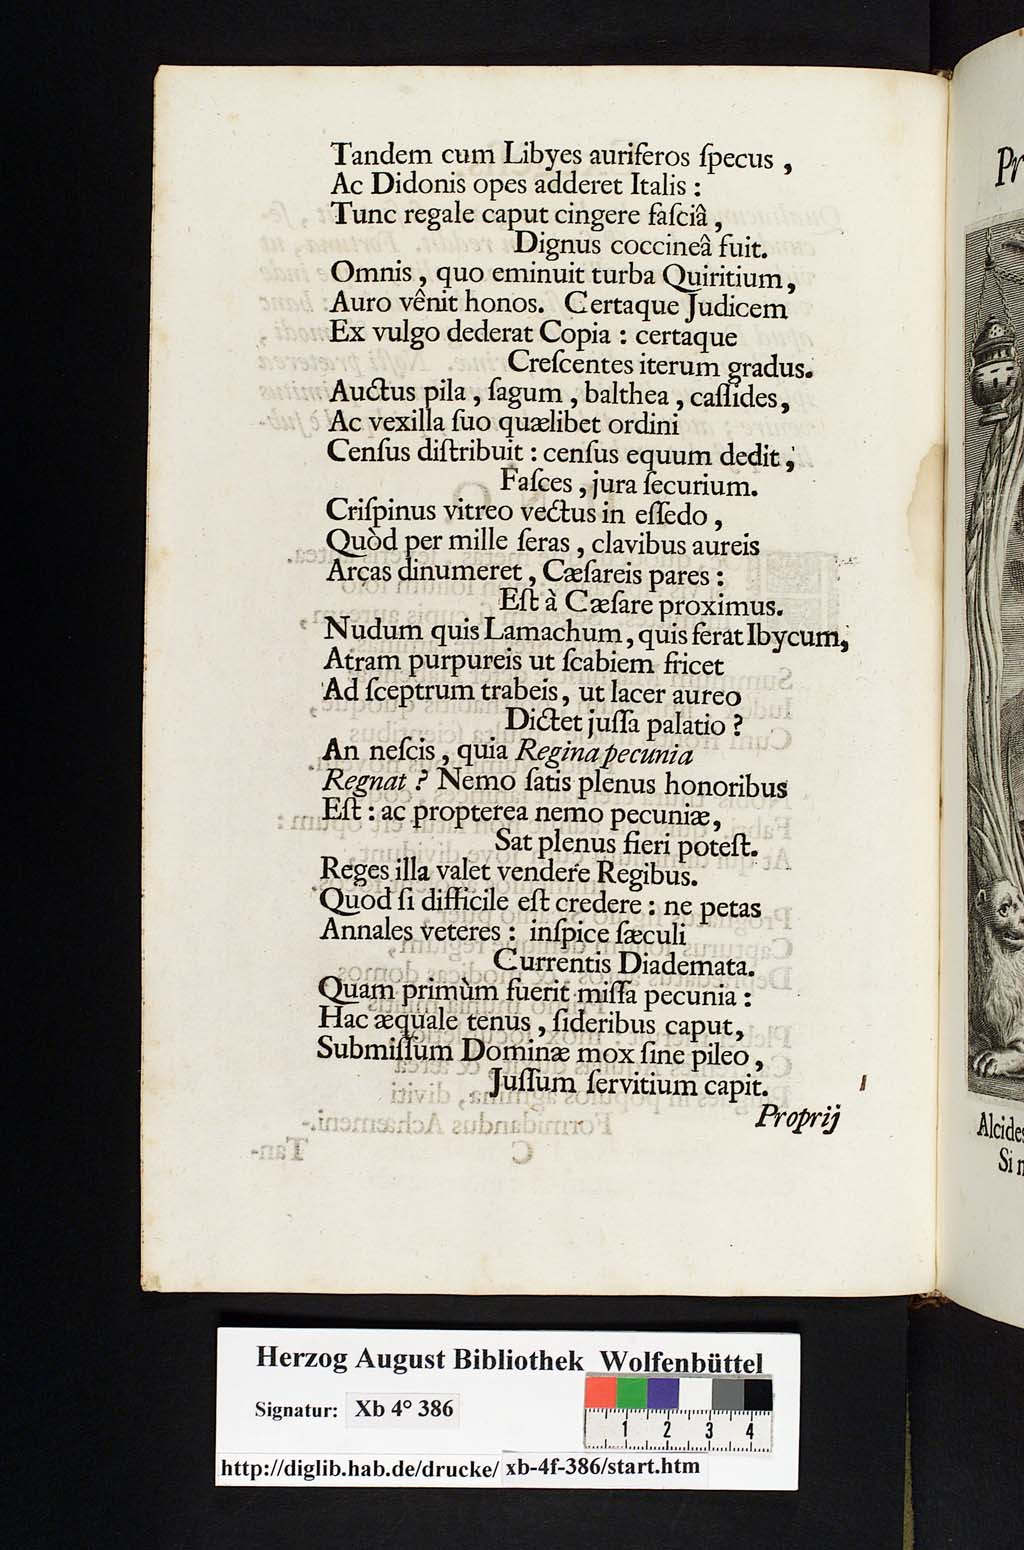 Tandem cum Libyes auriferos ſpecus ,
Ac Didonis opes adderet Italis :
Tunc regale caput cingere faſciâ ,
Dignus coccineâ fuit.
Omnis , quo eminuit turba Quiritium ,
Auro vênit honos. Certaque Judicem
Ex vulgo dederat Copia : certaque
Creſcentes iterum gradus.
Auctus pila , ſagum , balthea , caſſides ,
Ac vexilla ſuo quælibet ordini
Cenſus diſtribuit : cenſus equum dedit ,
Faſces , jura ſecurium.
Criſpinus vitreo vectus in eſſedo ,
Quòd per mille ſeras , clavibus aureis
Arcas dinumeret , Cæſareis pares :
Eſt à Cæſare proximus.
Nudum quis Lamachum , quis ferat Ibycum ,
Atram purpureis ut ſcabiem fricet
Ad ſceptrum trabeis , ut lacer aureo
Dictet juſſa palatio ?
An neſcis , quia Regina pecunia
Regnat ? Nemo ſatis plenus honoribus
Eſt : ac propterea nemo pecuniæ,
Sat plenus fieri poteſt.
Reges illa valet vendere Regibus.
Quod ſi difficile eſt credere : ne petas
Annales veteres : inſpice ſæculi
Currentis Diademata.
Quam primùm fuerit miſſa pecunia :
Hac æquale tenus , ſideribus caput,
Submiſſum Dominæ mox ſine pileo ,
Juſſum ſervitium capit.
Proprij
Pr
Alcides
Si
Herzog August Bibliothek Wolfenbüttel
Signatur: Xb 4° 386
1 2 3 4
http://diglib.hab.de/drucke/ xb-4f-386/start.htm